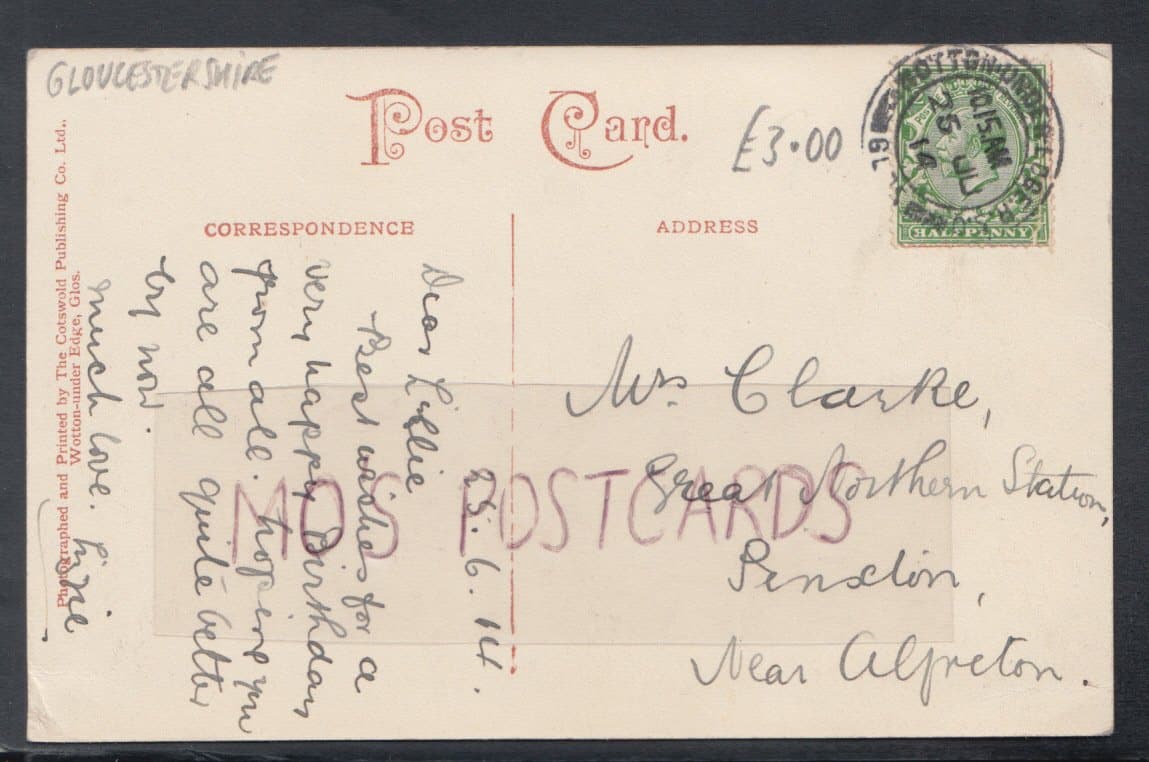 GLOUCESTERSHIRE
Post Card.
£3.00
CORRESPONDENCE
ADDRESS
WOTTON-UNDER-EDGE
10.15 AM
25 JU
14
HALFPENNY
Photographed and Printed by The Cotswold Publishing Co. Ltd.,
Wotton-under Edge, Glos.
25. 6. 14.
Dear Lillie
Best wishes for a
very happy Birthday
from all. hoping you
are all quite better
by now.
much love.
Mrs. Clarke,
Great Northern Station,
Pinxton,
Near Alfreton.
MOS POSTCARDS